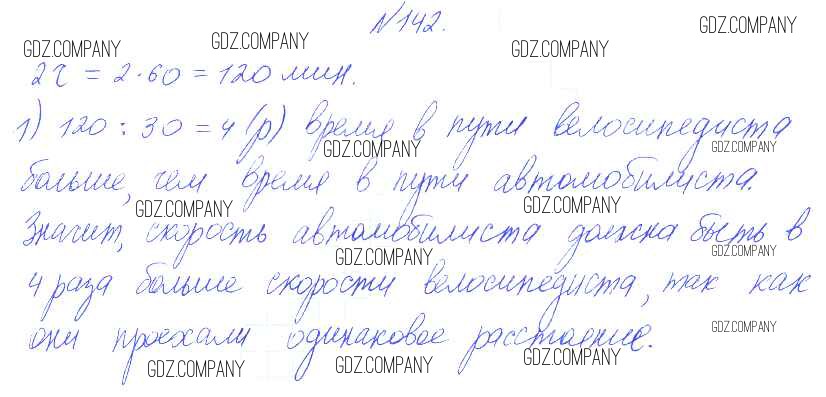 №142.
GDZ.COMPANY GDZ.COMPANY GDZ.COMPANY GDZ.COMPANY
2ч = 2·60 = 120 мин.
1) 120 : 30 = 4 (р) время в пути велосипедиста
GDZ.COMPANY GDZ.COMPANY
больше, чем время в пути автомобилиста.
GDZ.COMPANY GDZ.COMPANY
Значит, скорость автомобилиста должна быть в
GDZ.COMPANY GDZ.COMPANY
4 раза больше скорости велосипедиста, так как
они проехали одинаковое расстояние.
GDZ.COMPANY
GDZ.COMPANY GDZ.COMPANY GDZ.COMPANY